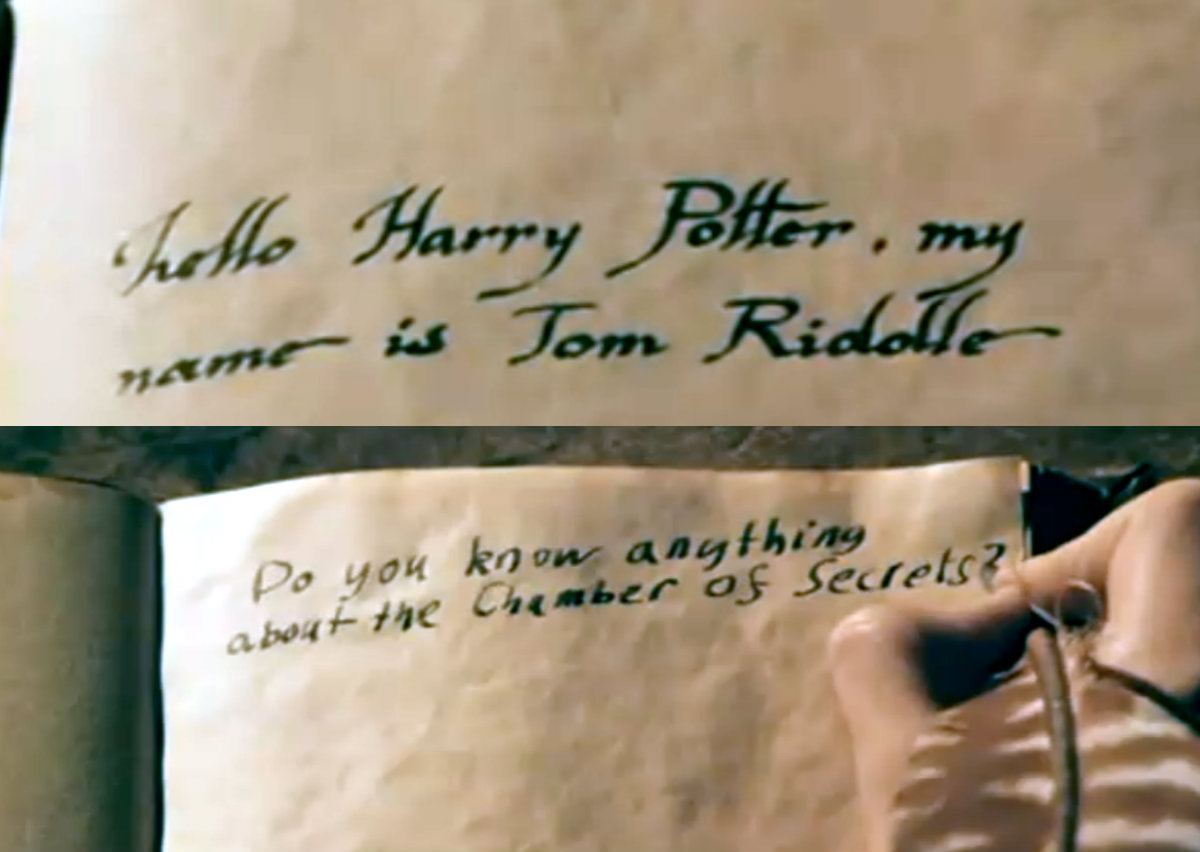 hello Harry Potter. my
name is Tom Riddle
Do you know anything
about the Chamber of Secrets?